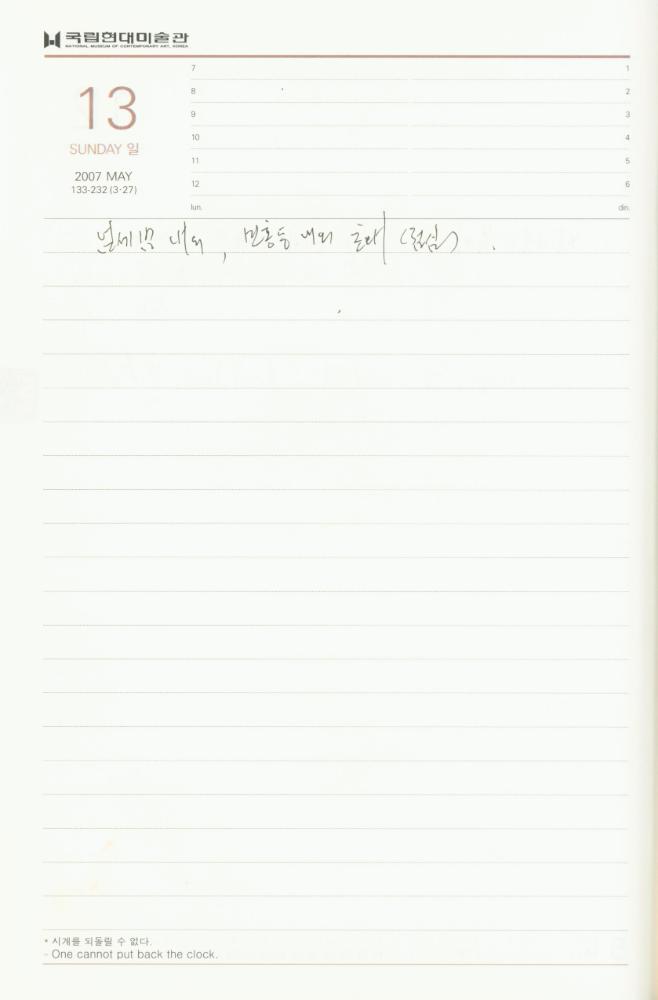 국립현대미술관
NATIONAL MUSEUM OF CONTEMPORARY ART, KOREA
13
SUNDAY 일
2007 MAY
133-232 (3·27)
7
8
9
10
11
12
lun.
1
2
3
4
5
6
din.
내외, 내외 초대 (점심).
* 시계를 되돌릴 수 없다.
- One cannot put back the clock.